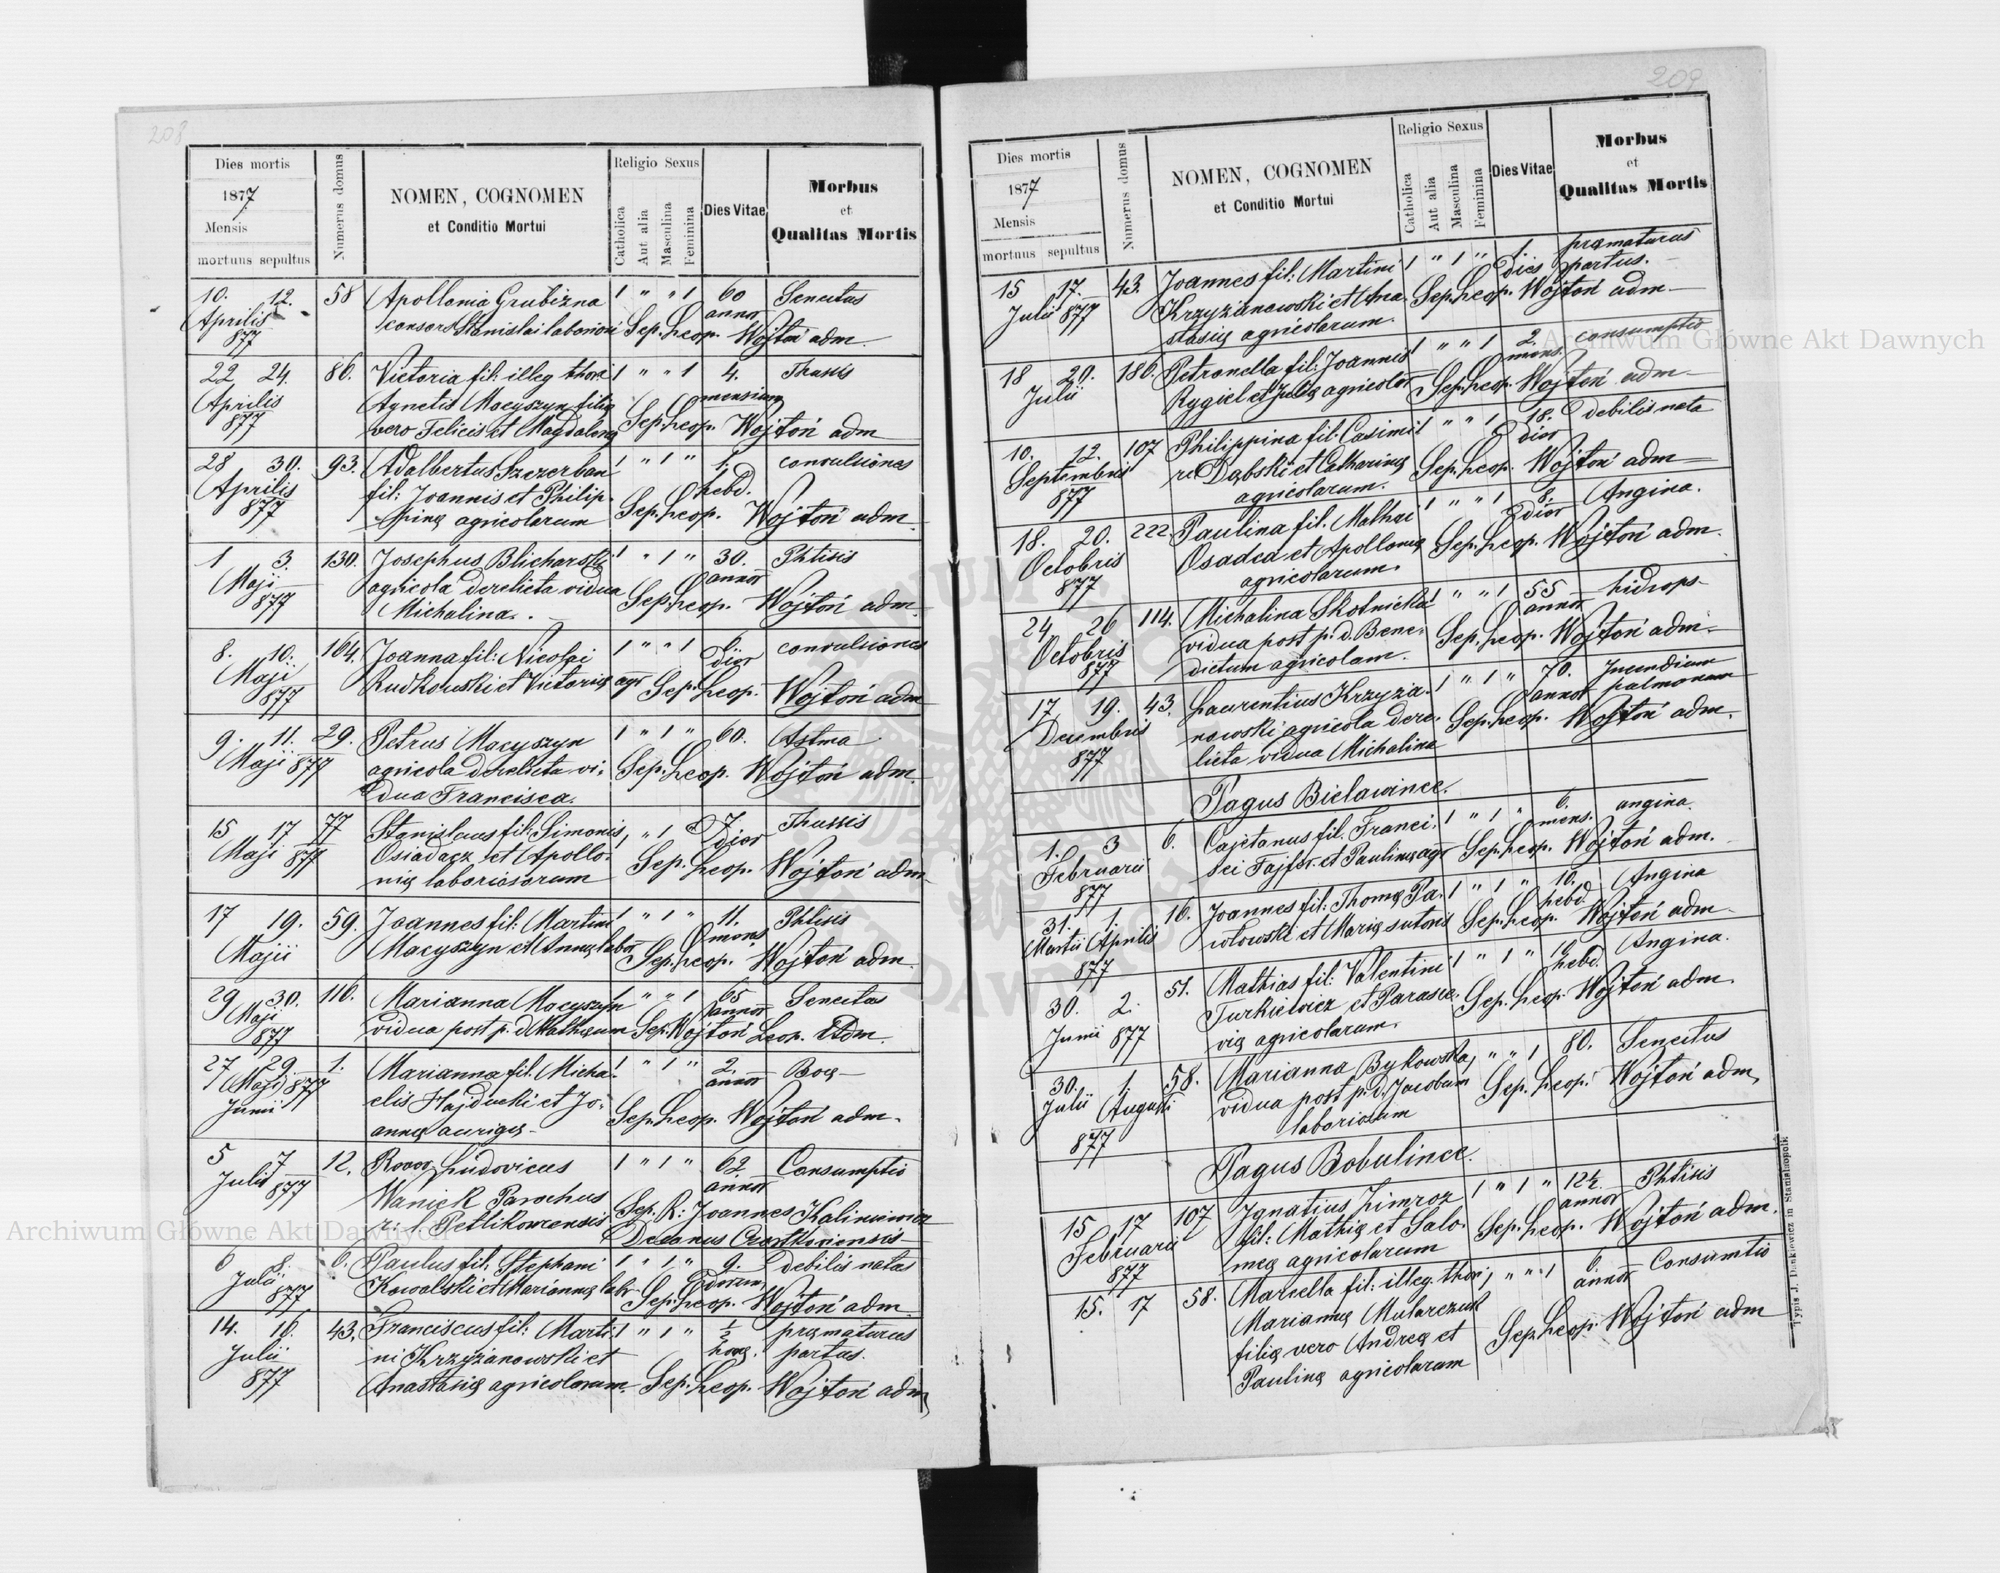 208
Dies mortis
1877
Mensis
mortuus sepultus
Numerus domus
NOMEN, COGNOMEN
et Conditio Mortui
Religio Sexus
Catholica
Aut alia
Masculina
Feminina
Dies Vitae
Morbus
et
Qualitas Mortis
10. 12. 58 Apollonia Grubizna 1 " " 1 60 Senectus
Aprilis consors Stanislai laboriosi annor
877 Sep. Leop. Wojtoń adm.
22 24. 86. Victoria fil: illeg. thori 1 " " 1 4. Thussis
Aprilis Agnetis Macyszyn filię mensium
877 vero Felicis et Magdalenę Sep. Leop. Wojtoń adm
28 30. 93. Adalbertus Szczerban 1 " 1 " 1. convulsiones
Aprilis fil: Joannis et Philip- hebd.
877 pinę agricolarum Sep. Leop. Wojtoń adm.
1 3. 130. Josephus Blicharski 1 " 1 " 30. Phtisis
Maji agricola derelicta vidua annor
877 Michalina. Sep. Leop. Wojtoń adm.
8. 10. 164. Joanna fil: Nicolai 1 " " 1 6 convulsiones
Maji Rudkowski et Victorię agr dior
877 Sep. Leop. Wojtoń adm
9. 11. 29. Petrus Macyszyn 1 " 1 " 60. Astma
Maji 877 agricola derelicta vi- Sep. Leop. Wojtoń adm.
dua Francisca.
15 17 77 Stanislaus fil. Simonis 1 " 1 " 7 Thussis
Maji 877 Osiadacz et Apollo- dior
nię laboriosorum Sep. Leop. Wojtoń adm.
17 19. 59. Joannes fil: Martini 1 " 1 " 11. Phtisis
Majii Macyszyn et Annę labor mens.
Sep. Leop. Wojtoń adm.
29 30. 116. Marianna Macyszyn 1 " " 1 65 Senectus
Maji vidua post p. d. Mathęum annor
877 Sep. Wojtoń Leop. Adm.
27 29. 1. Marianna fil. Micha- 1 " 1 " 2. Bog-
(Maji) 877 elis Hajducki et Jo- annor
Junii annę aurigę- Sep. Leop. Wojtoń adm.
5 7 12. Ludovicus 1 " 1 " 62 Consumptio
Julii 877 Wanick Parochus annor
r: l. Petlikowcensis Sep. R: Joannes Kaliniewicz
Decanus Czortkoviensis
6 8. 6. Paulus fil. Stephani 1 " 1 " 9. debilis natus
Julii Kowalski et Mariannę labr dierum
877 Sep: Leop. Wojtoń adm.
14. 16. 43. Franciscus fil: Marti- 1 " 1 " ½ pręmaturus
Julii ni Krzyżanowski et horę. partus.
877 Anastasię agricolarum. Sep. Leop. Wojtoń adm
209
Dies mortis
1877
Mensis
mortuus sepultus
Numerus domus
NOMEN, COGNOMEN
et Conditio Mortui
Religio Sexus
Catholica
Aut alia
Masculina
Feminina
Dies Vitae
Morbus
et
Qualitas Mortis
15 17. 43. Joannes fil: Martini 1 " 1 " 1. pręmaturus
Julii 877 Krzyżanowski et Ana- dies partus.
stasię agricolarum. Sep. Leop. Wojtoń adm-
18 20. 186. Petronella fil: Joannis 1 " " 1 2. consumptio
Julii Rygiel et Julię agricolar mens.
Sep. Leop. Wojtoń adm-
10. 12. 107 Philippina fil: Casimi- 1 " " 1 18. debilis nata
Septembris ri Dąbski et Catharinę dior
877 agricolarum. Sep. Leop. Wojtoń adm-
18. 20. 222. Paulina fil. Mathei 1 " " 1 8. Angina.
Octobris Osadca et Apollonię dior
877 agricolarum. Sep. Leop. Wojtoń adm.
24 26 114. Michalina Skotnicka 1 " " 1 55 hidrops-
Octobris vidua post p. d. Bene- annor
877 dictum agricolam. Sep. Leop. Wojtoń adm-
17 19. 43. Laurentius Krzyża- 1 " 1 " 70. Incendium
Decembris nowski agricola dere- annor pulmonum
877 licta vidua Michalina Sep. Leop. Wojtoń adm.
Pagus Bielawince.
1. 3 6. Cajetanus fil. Franci- 1 " 1 " 6. angina.
Februarii sci Fajfer et Paulinę agr mens.
877 Sep. Leop. Wojtoń adm.
31. 1. 16. Joannes fil: Thomę Pa- 1 " 1 " 10. Angina
Martii Aprilis wlowski et Marię sutoris hebd.
877 Sep. Leop. Wojtoń adm-
30. 2. 51. Mathias fil: Valentini 1 " 1 " Angina.
Junii 877 Turkiewicz et Parasce- hebd.
vię agricolarum. Sep. Leop. Wojtoń adm.
30. 1. 58. Marianna Bykowska 1 " " 1 80. Senectus
Julii Augusti vidua post p. d. Jacobum
877 laboriosum Sep. Leop. Wojtoń adm,
Pagus Bobulince.
15 17 107 Ignatius Zimroz 1 " 1 " 12½ Phtisis
Februarii fil: Mathię et Salo- annor
877 meę agricolarum Sep. Leop. Wojtoń adm.
15. 17 58. Mariella fil: illeg. thori 1 " " 1 6. Consumtio
Mariannę Mularczuk annor
filię vero Andreę et Sep. Leop. Wojtoń adm
Paulinę agricolarum
Typis J. Dankiewicz in Stanislaopoli
Archiwum Główne Akt Dawnych
Archiwum Główne Akt Dawnych